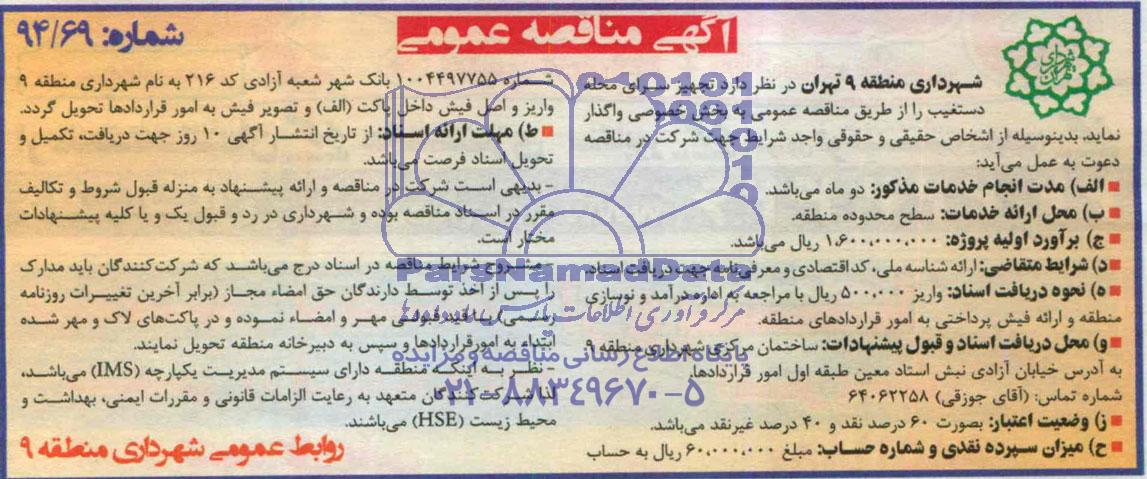 آگهی مناقصه عمومی
شماره: ۹۴/۶۹
شهرداری منطقه ۹ تهران در نظر دارد تجهیز سرای محله
دستغیب را از طریق مناقصه عمومی به بخش خصوصی واگذار
نماید. بدینوسیله از اشخاص حقیقی و حقوقی واجد شرایط جهت شرکت در مناقصه
دعوت به عمل می‌آید:
الف) مدت انجام خدمات مذکور: دو ماه می‌باشد.
ب) محل ارائه خدمات: سطح محدوده منطقه.
ج) برآورد اولیه پروژه: ۱،۶۰۰،۰۰۰،۰۰۰ ریال می‌باشد.
د) شرایط متقاضی: ارائه شناسه ملی، کد اقتصادی و معرفی‌نامه جهت دریافت اسناد.
ه) نحوه دریافت اسناد: واریز ۵۰۰،۰۰۰ ریال با مراجعه به اداره درآمد و نوسازی
منطقه و ارائه فیش پرداختی به امور قراردادهای منطقه.
و) محل دریافت اسناد و قبول پیشنهادات: ساختمان مرکزی شهرداری منطقه ۹
به آدرس خیابان آزادی نبش استاد معین طبقه اول امور قراردادها.
شماره تماس: (آقای جوزقی) ۶۴۰۶۲۲۵۸
ز) وضعیت اعتبار: بصورت ۶۰ درصد نقد و ۴۰ درصد غیرنقد می‌باشد.
ح) میزان سپرده نقدی و شماره حساب: مبلغ ۶۰،۰۰۰،۰۰۰ ریال به حساب
شماره ۱۰۰۴۴۹۷۷۵۵ بانک شهر شعبه آزادی کد ۲۱۶ به نام شهرداری منطقه ۹
واریز و اصل فیش داخل پاکت (الف) و تصویر فیش به امور قراردادها تحویل گردد.
ط) مهلت ارائه اسناد: از تاریخ انتشار آگهی ۱۰ روز جهت دریافت، تکمیل و
تحویل اسناد فرصت می‌باشد.
- بدیهی است شرکت در مناقصه و ارائه پیشنهاد به منزله قبول شروط و تکالیف
مقرر در اسناد مناقصه بوده و شهرداری در رد و قبول یک و یا کلیه پیشنهادات
مختار است.
- مشروح شرایط مناقصه در اسناد درج می‌باشد که شرکت‌کنندگان باید مدارک
را پس از اخذ توسط دارندگان حق امضاء مجاز (برابر آخرین تغییرات روزنامه
رسمی) با قید قبولی مهر و امضاء نموده و در پاکت‌های لاک و مهر شده
ابتداء به امور قراردادها و سپس به دبیرخانه منطقه تحویل نمایند.
- نظر به اینکه منطقه دارای سیستم مدیریت یکپارچه (IMS) می‌باشد،
لذا شرکت‌کنندگان متعهد به رعایت الزامات قانونی و مقررات ایمنی، بهداشت و
محیط زیست (HSE) می‌باشند.
روابط عمومی شهرداری منطقه ۹
ParsNamadData
پایگاه اطلاع رسانی مناقصه و مزایده
۰۲۱-۸۸۳۴۹۶۷۰-۵